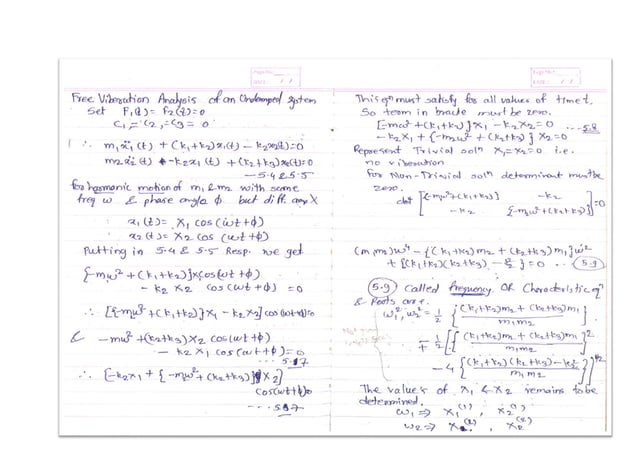 Page No.
Date: / /
Free Viberation Analysis of an Undamped system
Set F₁(t) = F₂(t) = 0
C₁ = C₂ = C₃ = 0
∴ m₁ẍ₁(t) + (k₁+k₂)x₁(t) − k₂x₂(t) = 0
m₂ẍ₂(t) − k₂x₁(t) + (k₂+k₃)x₂(t) = 0
— 5.4 & 5.5
for harmonic motion of m₁ & m₂ with same
freq ω & phase angle ϕ but diff. X
∴ x₁(t) = X₁ cos(ωt+ϕ)
∴ x₂(t) = X₂ cos(ωt+ϕ)
Putting in 5.4 & 5.5 Resp. we get
{−m₁ω² + (k₁+k₂)}X₁cos(ωt+ϕ)
− k₂X₂ cos(ωt+ϕ) = 0
∴ [{−m₁ω² + (k₁+k₂)}X₁ − k₂X₂] cos(ωt+ϕ)=0
& −mω² + (k₂+k₃)X₂ cos(ωt+ϕ)
− k₂X₁ cos(ωt+ϕ) = 0
∴ [−k₂X₁ + {−m₂ω² + (k₂+k₃)}X₂]
cos(ωt+ϕ)=0
... 5.7
Page No.
Date: / /
This eqⁿ must satisfy for all values of time t.
So term in bracte must be zero.
[−mω² + (k₁+k₂)]X₁ − k₂X₂ = 0
... 5.8
−k₂X₁ + {−m₂ω² + (k₂+k₃)}X₂ = 0
Represent Trivial solⁿ X₁=X₂=0 i.e.
no viberation
For Non-Trivial solⁿ determinant must be
zero.
det [{−m₁ω²+(k₁+k₂)} −k₂
−k₂ {−m₂ω²+(k₂+k₃)}] = 0
(m₁m₂)ω⁴ − {(k₁+k₂)m₂ + (k₂+k₃)m₁}ω²
+ {(k₁+k₂)(k₂+k₃) − k₂²} = 0 ... 5.9
5.9 called frequency OR Characteristic eqⁿ
& Roots are.
ω₁², ω₂² = 1/2 {(k₁+k₂)m₂ + (k₂+k₃)m₁ / m₁m₂}
∓ 1/2 [{(k₁+k₂)m₂ + (k₂+k₃)m₁ / m₁m₂}²
− 4{(k₁+k₂)(k₂+k₃) − k₂² / m₁m₂}]^1/2
The values of X₁ & X₂ remains to be
determined.
ω₁ ⇒ X₁⁽¹⁾, X₂⁽¹⁾
ω₂ ⇒ X₁⁽²⁾, X₂⁽²⁾